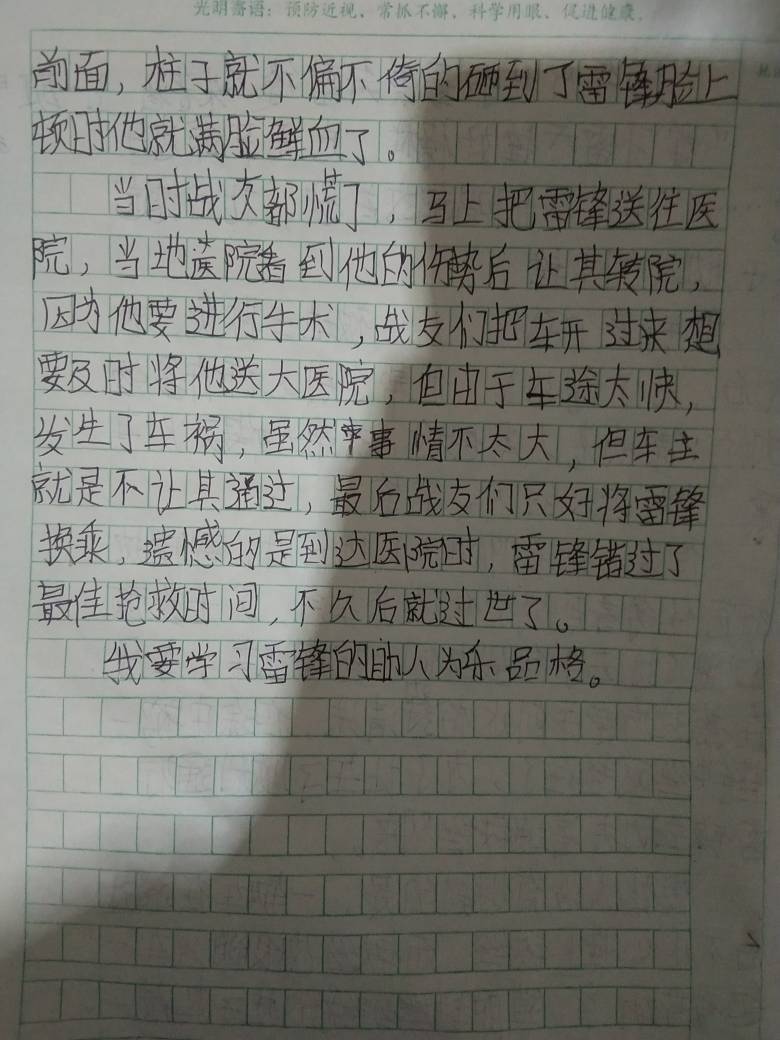 光明寄语：预防近视，常抓不懈，科学用眼，促进健康。
前面，柱子就不偏不倚的砸到了雷锋脸上
顿时他就满脸鲜血了。
当时战友都慌了，马上把雷锋送往医
院，当地医院看到他的伤势后让其转院，
因为他要进行手术，战友们把车开过来想
要及时将他送大医院，但由于车途太快，
发生了车祸，虽然事情不太大，但车主
就是不让其通过，最后战友们只好将雷锋
换乘，遗憾的是到达医院时，雷锋错过了
最佳抢救时间，不久后就过世了。
我要学习雷锋的助人为乐品格。